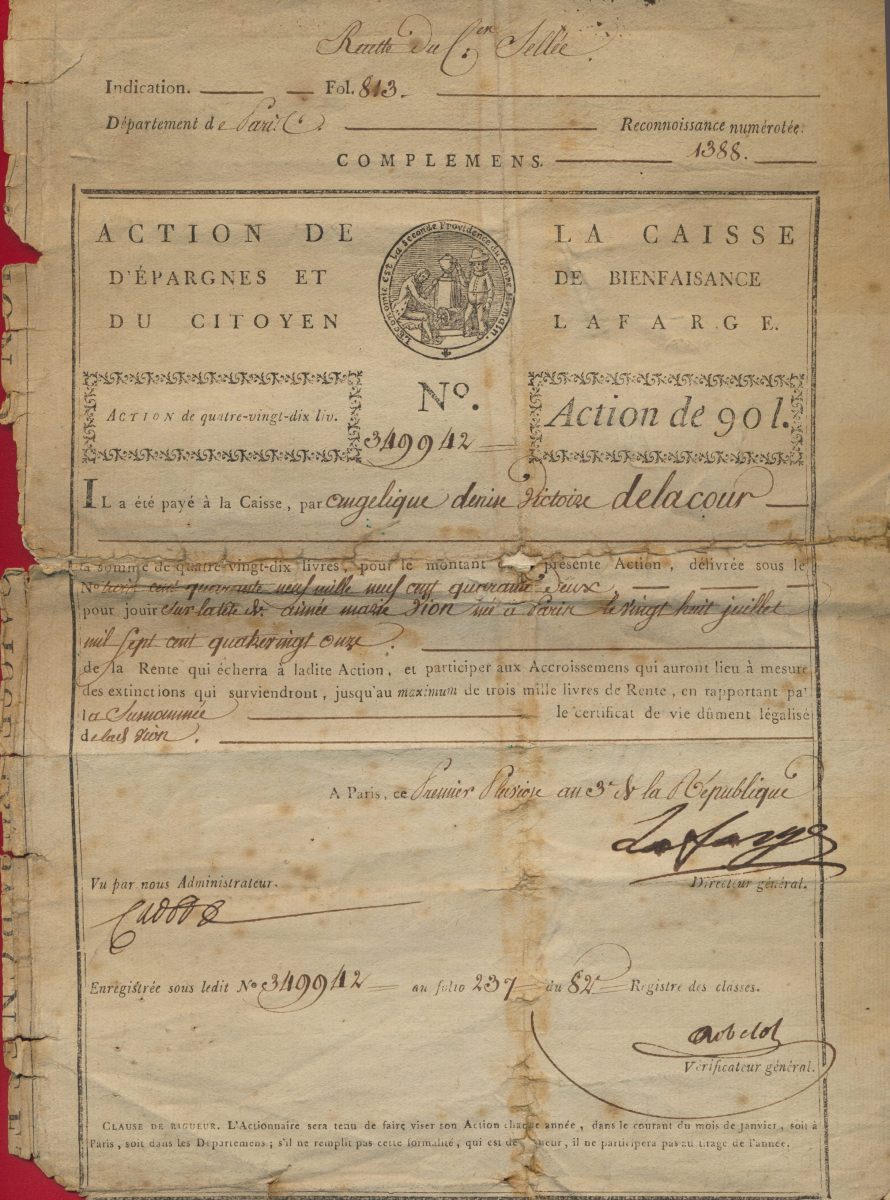 Recette du C.en Sellée
Indication. Fol. 813.
Département de Paris.
Reconnoissance numérotée.
COMPLEMENS. 1388.
ACTION DE LA CAISSE
D'ÉPARGNES ET DE BIENFAISANCE
DU CITOYEN LAFARGE.
L'économie est la seconde Providence du Genre humain.
ACTION de quatre-vingt-dix liv. No. Action de 90 l.
349942
IL a été payé à la Caisse, par angelique denise Victoire delacour
la somme de quatre-vingt-dix livres, pour le montant présente Action, délivrée sous le
No trois cent quarante neuf mille neuf cent quarante deux
pour jouir sur la tête de aimée marie Dion née à Paris le vingt huit juillet
mil sept cent quatrevingt onze.
de la Rente qui écherra à ladite Action, et participer aux Accroissemens qui auront lieu à mesure
des extinctions qui surviendront, jusqu'au maximum de trois mille livres de Rente, en rapportant par
la Surnommée le certificat de vie dûment légalisé
de lad. Dion.
A Paris, ce Premier Pluviose an 3e de la République
Lafarge
Directeur général.
Vu par nous Administrateur.
Enregistrée sous ledit No 349942 au folio 237 du 82e Registre des classes.
Robelot
Vérificateur général.
CLAUSE DE RIGUEUR. L'Actionnaire sera tenu de faire viser son Action chaque année, dans le courant du mois de janvier, soit à
Paris, soit dans les Départemens; s'il ne remplit pas cette formalité, qui est de rigueur, il ne participera pas au tirage de l'année.